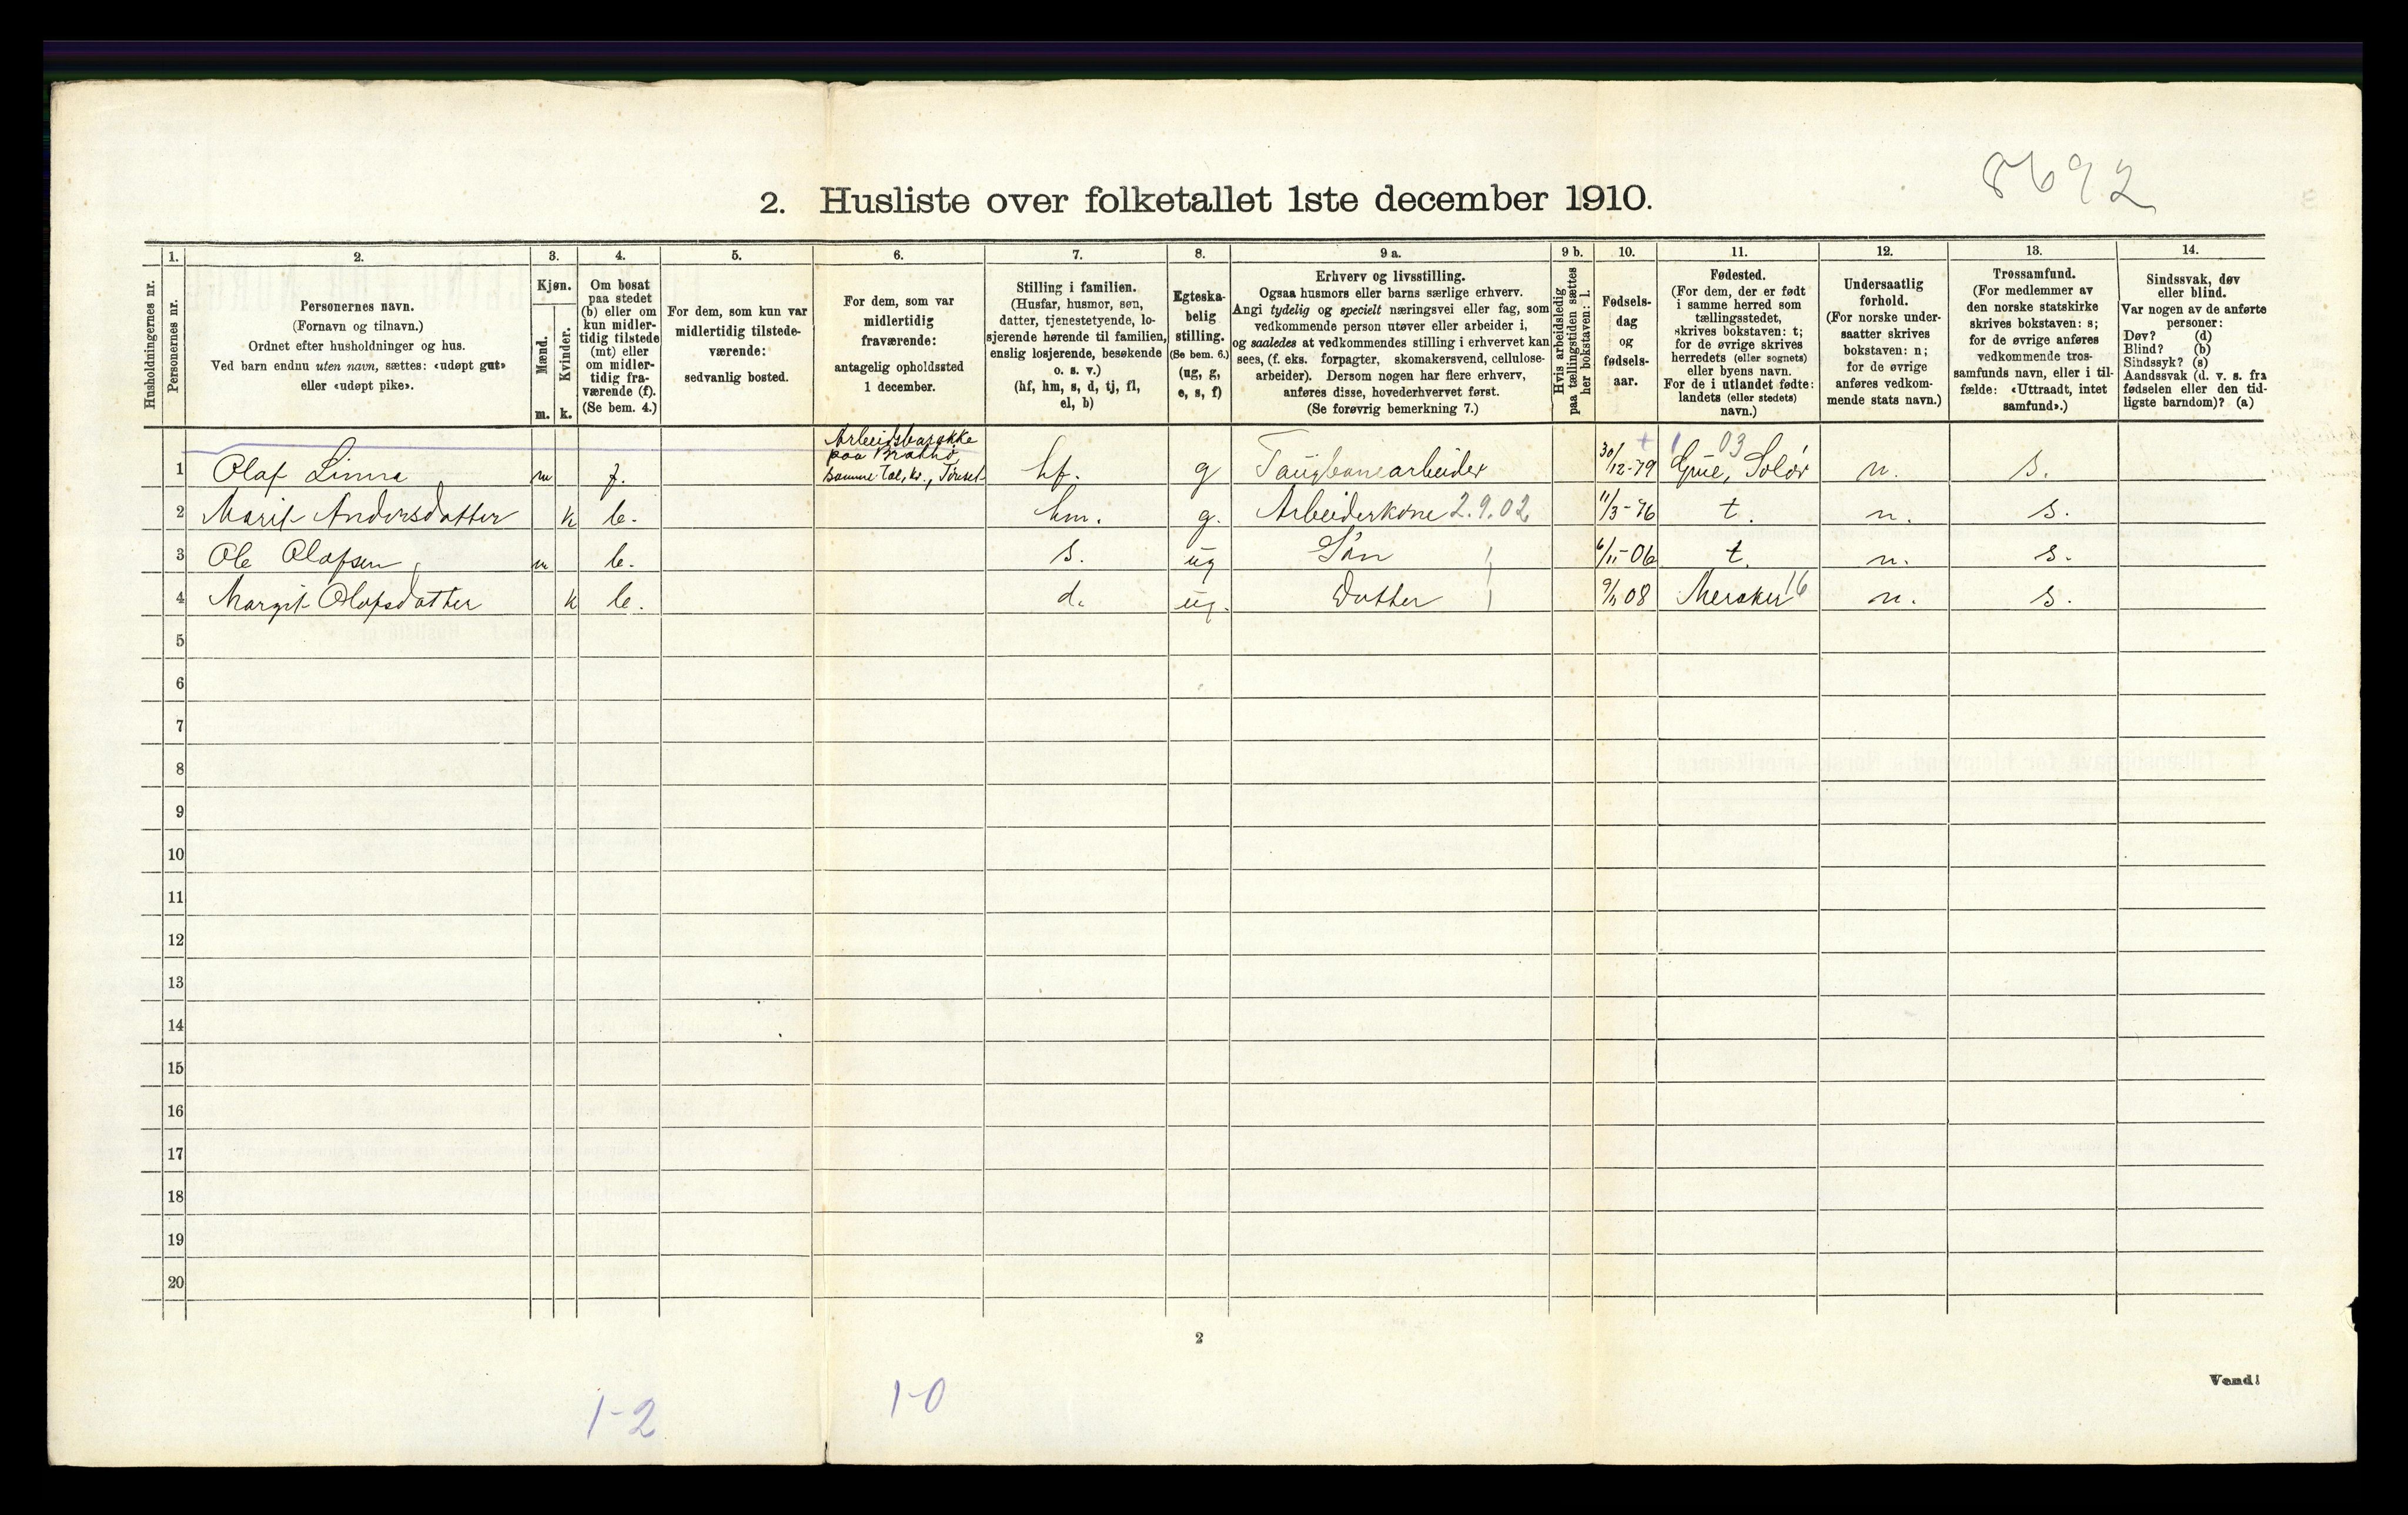 8692
2. Husliste over folketallet 1ste december 1910.
Husholdningernes nr.
1.
Personernes nr.
2.
Personernes navn.
(Fornavn og tilnavn.)
Ordnet efter husholdninger og hus.
Ved barn endnu uten navn, sættes: «udøpt gut»
eller «udøpt pike».
3.
Kjøn.
Mænd.
m.
Kvinder.
k.
4.
Om bosat
paa stedet
(b) eller om
kun midler-
tidig tilstede
(mt) eller
om midler-
tidig fra-
værende (f).
(Se bem. 4.)
5.
For dem, som kun var
midlertidig tilstede-
værende:
sedvanlig bosted.
6.
For dem, som var
midlertidig
fraværende:
antagelig opholdssted
1 december.
7.
Stilling i familien.
(Husfar, husmor, søn,
datter, tjenestetyende, lo-
sjerende hørende til familien,
enslig losjerende, besøkende
o. s. v.)
(hf, hm, s, d, tj, fl,
el, b)
8.
Egteska-
belig
stilling.
(Se bem. 6.)
(ug, g,
e, s, f)
9 a.
Erhverv og livsstilling.
Ogsaa husmors eller barns særlige erhverv.
Angi tydelig og specielt næringsvei eller fag, som
vedkommende person utøver eller arbeider i,
og saaledes at vedkommendes stilling i erhvervet kan
sees, (f. eks. forpagter, skomakersvend, cellulose-
arbeider). Dersom nogen har flere erhverv,
anføres disse, hovederhvervet først.
(Se forøvrig bemerkning 7.)
9 b.
Hvis arbeidsledig
paa tællingstiden sættes
her bokstaven: l.
10.
Fødsels-
dag
og
fødsels-
aar.
11.
Fødested.
(For dem, der er født
i samme herred som
tællingsstedet,
skrives bokstaven: t;
for de øvrige skrives
herredets (eller sognets)
eller byens navn.
For de i utlandet fødte:
landets (eller stedets)
navn.)
12.
Undersaatlig
forhold.
(For norske under-
saatter skrives
bokstaven: n;
for de øvrige
anføres vedkom-
mende stats navn.)
13.
Trossamfund.
(For medlemmer av
den norske statskirke
skrives bokstaven: s;
for de øvrige anføres
vedkommende tros-
samfunds navn, eller i til-
fælde: «Uttraadt, intet
samfund».)
14.
Sindssvak, døv
eller blind.
Var nogen av de anførte
personer:
Døv? (d)
Blind? (b)
Sindssyk? (s)
Aandssvak (d. v. s. fra
fødselen eller den tid-
ligste barndom)? (a)
Arbeidsbarakke
paa
1 Olaf Linna m f. samme hf. g Taugbanearbeider 30/12-79 Grue, Solør 03 n. s.
2 Marit Andersdatter k b. hm. g. Arbeiderkone 2.9.02 11/3-76 t. n. s.
3 Ole Olafsen m b. s. ug Søn 6/11-06 t. n. s.
4 Margit Olafsdatter k b. d. ug. Datter 08 Meraker 16 n. s.
5
6
7
8
9
10
11
12
13
14
15
16
17
18
19
20
2
Vend!
1-2
1-0